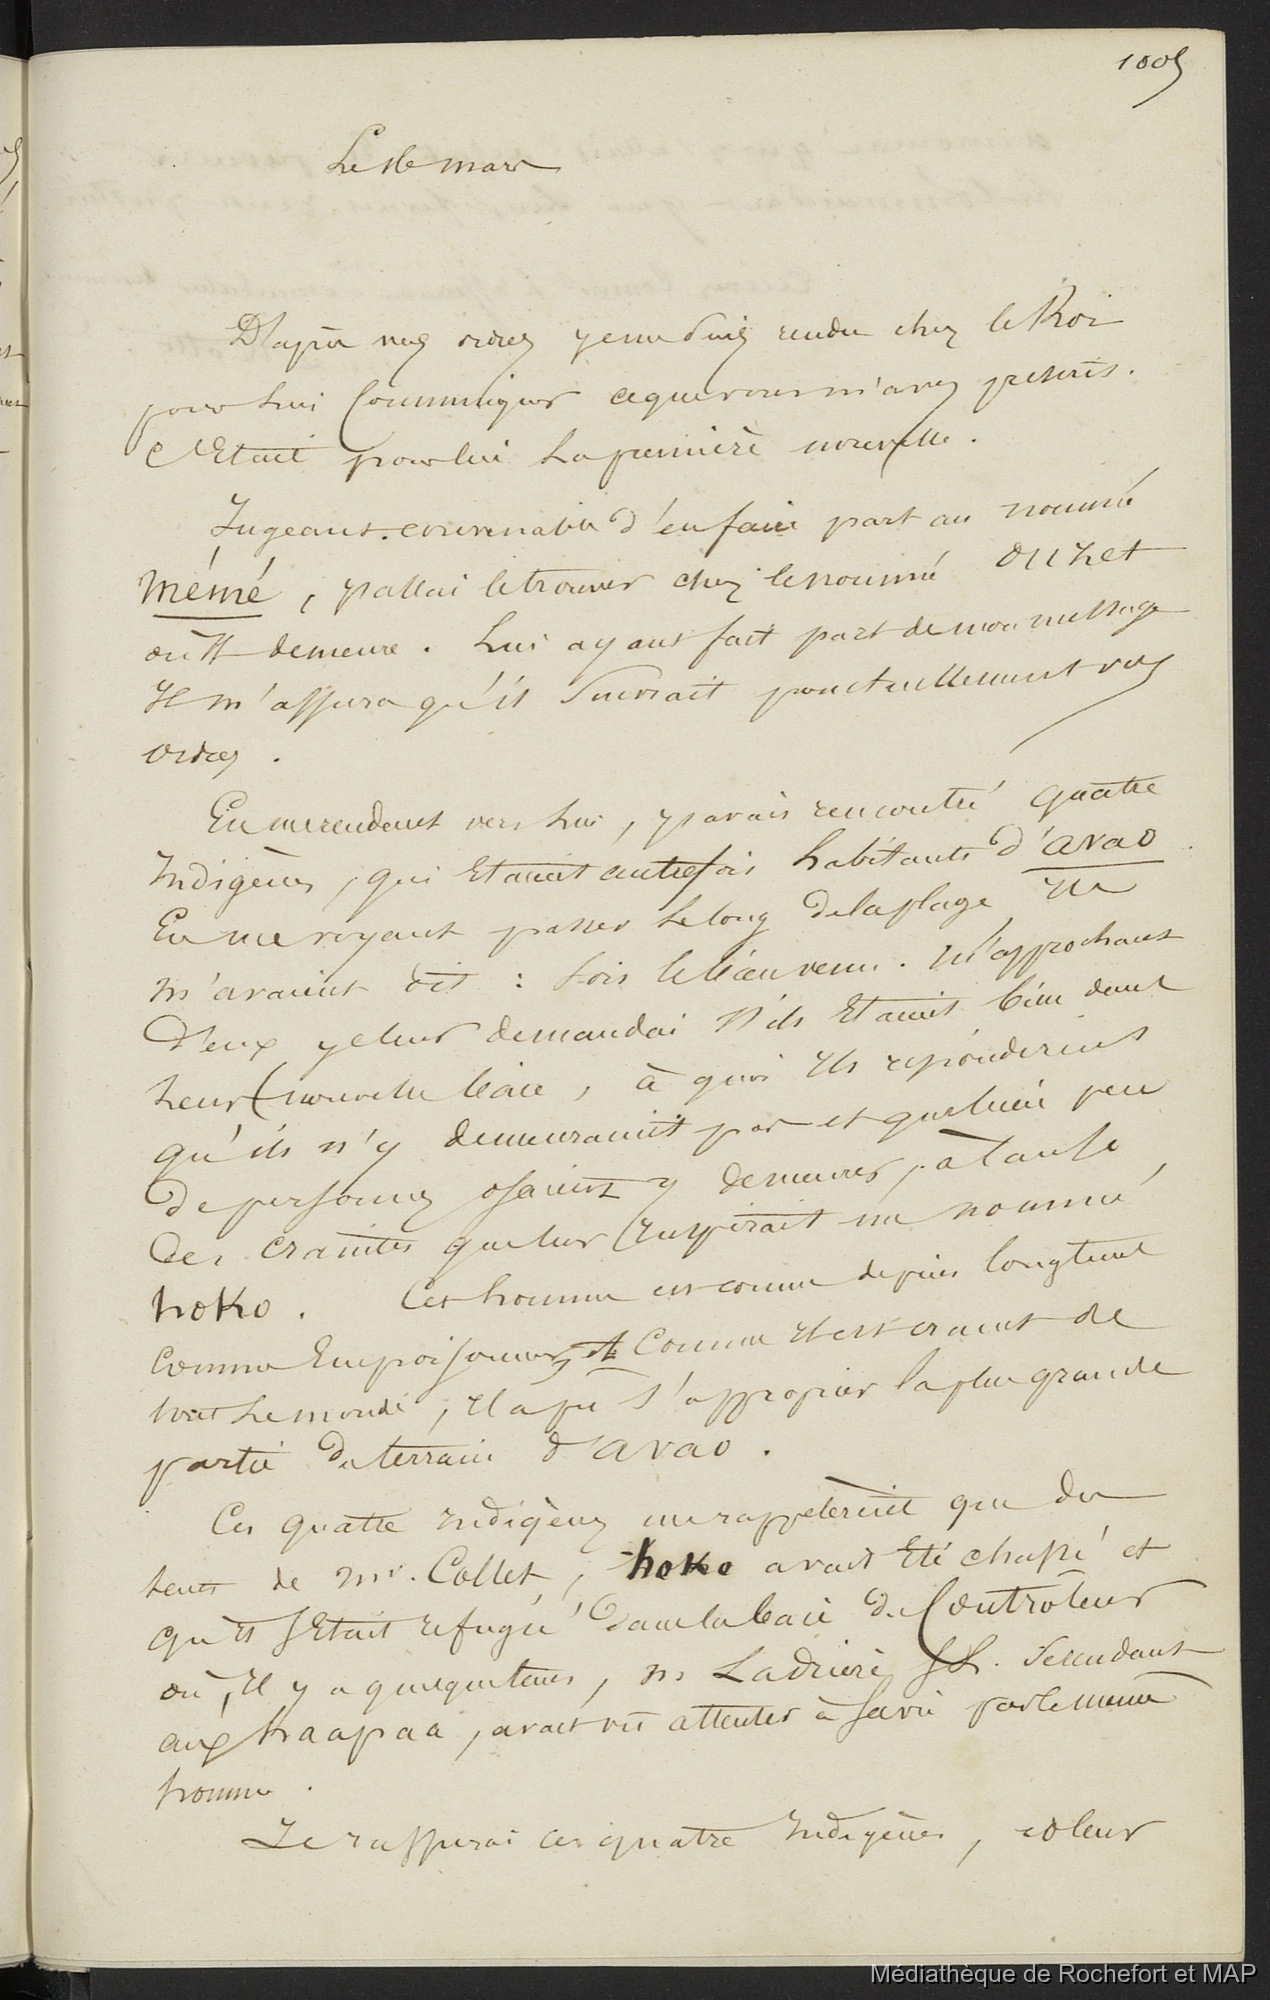 1005
Le 16 mars
D'après vos ordres je me suis rendu chez le Roi
pour lui Communiquer ce que vous m'avez prescris.
C'Etait pour lui la première nouvelle.
Jugeant convenable d'en faire part au nommé
Mémé, j'allai le trouver chez le nommé
où Il demeure. Lui ayant fait part de mon message
Il m'assura qu'il Suivrait ponctuellement vos
ordres.
En me rendant vers lui, j'avais rencontré quatre
Indigènes, qui Etaient autrefois habitants d'avao.
En me voyant passer le long de la plage, Ils
m'avaient dit : sois le bienvenu. M'approchant
d'eux je leur demandai s'ils Etaient bien dans
leur nouvelle baie, à quoi Ils repondirent
qu'ils n'y demeuraient pas et que bien peu
de personnes osaient y demeurer, à Cause
des craintes que leur Inspirait un nommé
hoko. Cet homme est connu depuis longtems
comme Empoisonneur, et Comme Il est craint de
tout le monde, Il a pu s'approprier la plus grande
partie du terrain d'avao.
Ces quatre Indigènes me rappelèrent que du
tems de Mr. Collet, hoko avait Eté chassé et
qu'Il s'Etait refugié dans la baie du Controleur
où, Il y a quelque tems, M Ladrière Descendant
aux haapaa, avait vu attenter à sa vie par le même
homme.
Je rassurai ces quatre Indigènes, et leur
Médiathèque de Rochefort et MAP